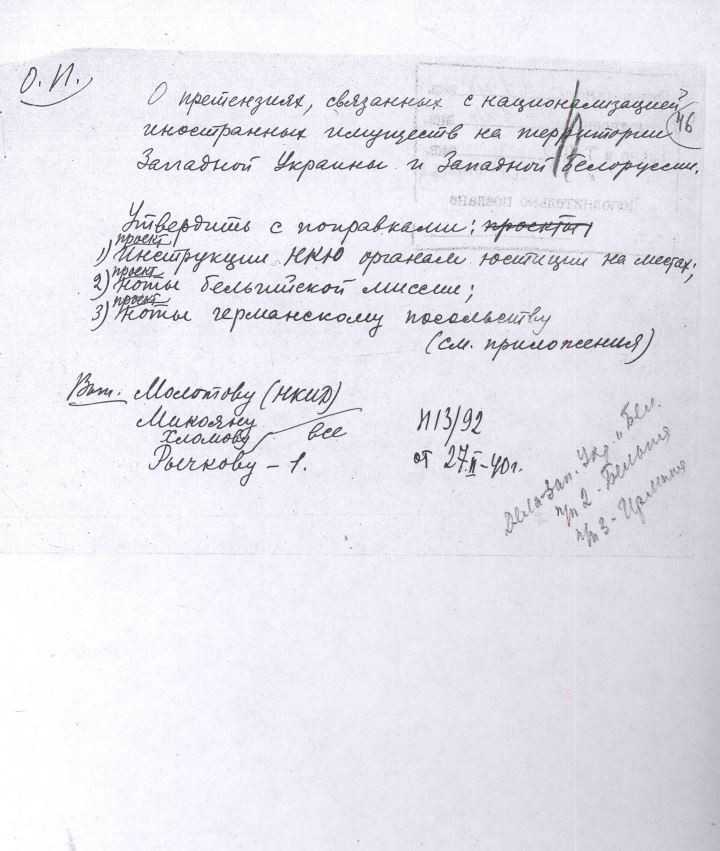 О.П.
О претензиях, связанных с национализацией
46
иностранных имуществ на территории
Западной Украины и Западной Белоруссии.
дополнительно послана
Утвердить с поправками: проекты
проект
1) Инструкции НКЮ органам юстиции на местах;
проект
2) Ноты бельгийской миссии;
проект
3) Ноты германскому посольству
(см. приложения)
Вып. Молотову (НКИД)
Микояну
Хломову все
Рычкову – 1.
П13/92
от 27.II–40г.
Дела: Зап. Укр. и Бел.
п/п 2 - Бельгия
п/п 3 - Германия